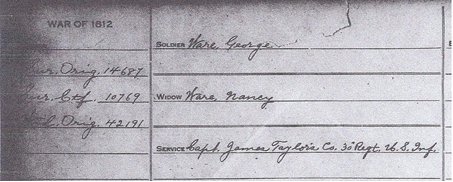 WAR OF 1812
SOLDIER Ware, George
Orig. 14687
Ctf. 10769
WIDOW Ware, Nancy
Orig. 42191
SERVICE Capt. James Taylor's Co. 30 Regt. U.S. Inf.